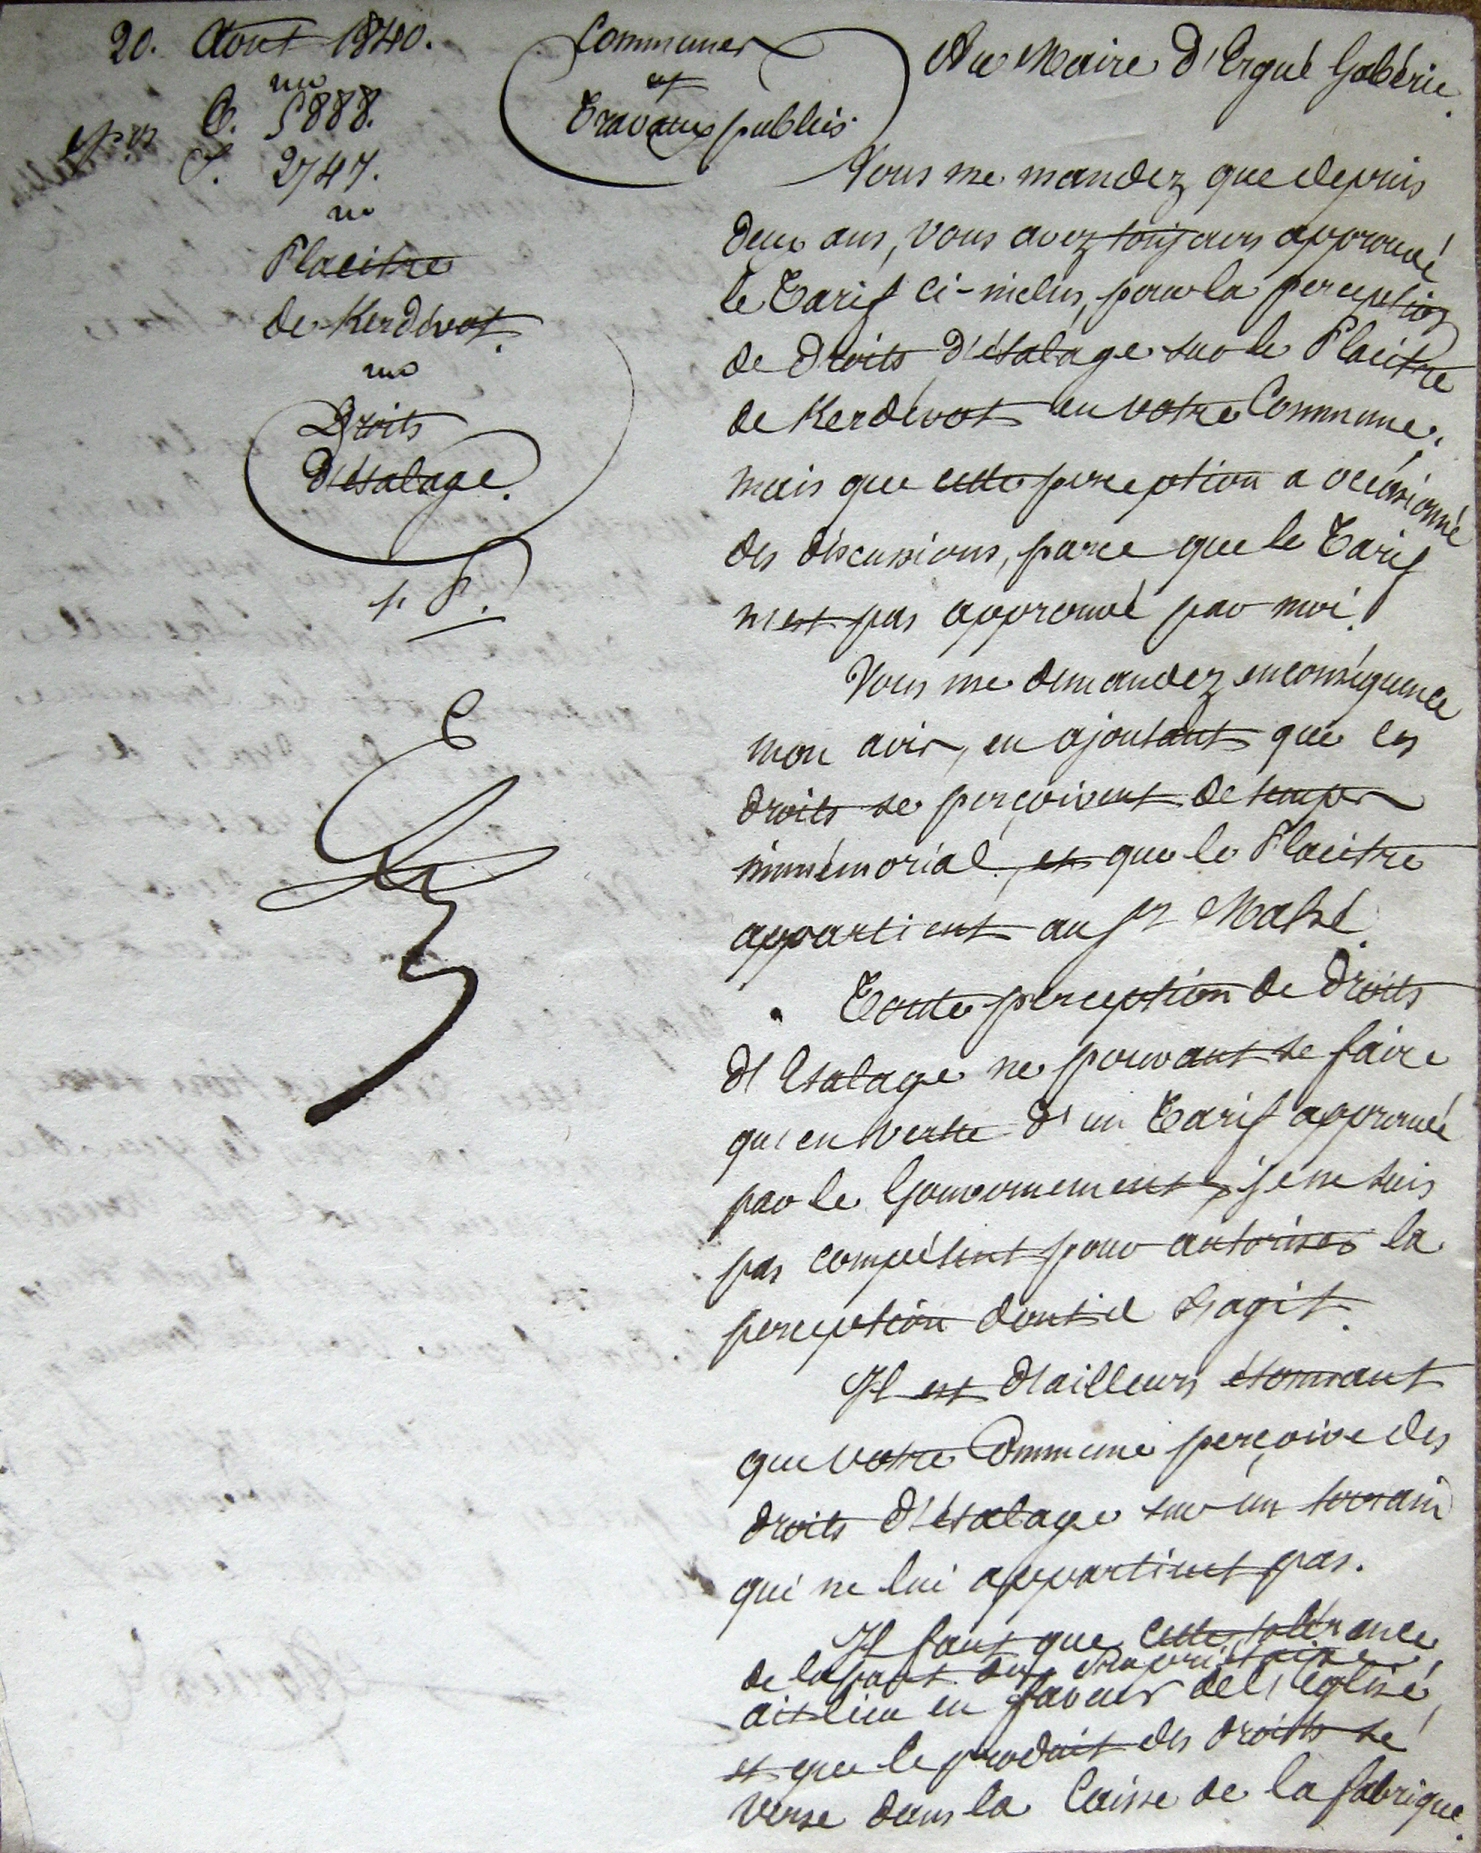 20. Aout 1840.
no
C. 5888.
S. 2747.
no
Placitre
de Kerdévot.
no
Droits
d'étalage.
Communes
et
Travaux publics.
Au Maire d'Ergué Gabéric.
Vous me mandez que depuis
deux ans, vous avez toujours approuvé
le Tarif ci-inclus, pour la perception
de droits d'étalage sur le Placitre
de Kerdévot en votre Commune,
mais que cette perception a occasionné
des discussions, parce que le Tarif
n'est pas approuvé par moi.
Vous me demandez en conséquence
mon avis, en ajoutant que les
droits se perçoivent de temps
immémorial, et que le Placitre
appartient au Sr Malhé.
Toute perception de droits
d'Etalage ne pouvant se faire
qu'en vertu d'un Tarif approuvé
par le Gouvernement, je ne suis
pas compétent pour autoriser la
perception dont il s'agit.
Il est d'ailleurs étonnant
que votre Commune perçoive des
droits d'étalage sur un terrain
qui ne lui appartient pas.
Il faut que cette tolérance
de la part du propriétaire
ait lieu en faveur de l'église,
et que le produit des droits se
verse dans la Caisse de la fabrique.